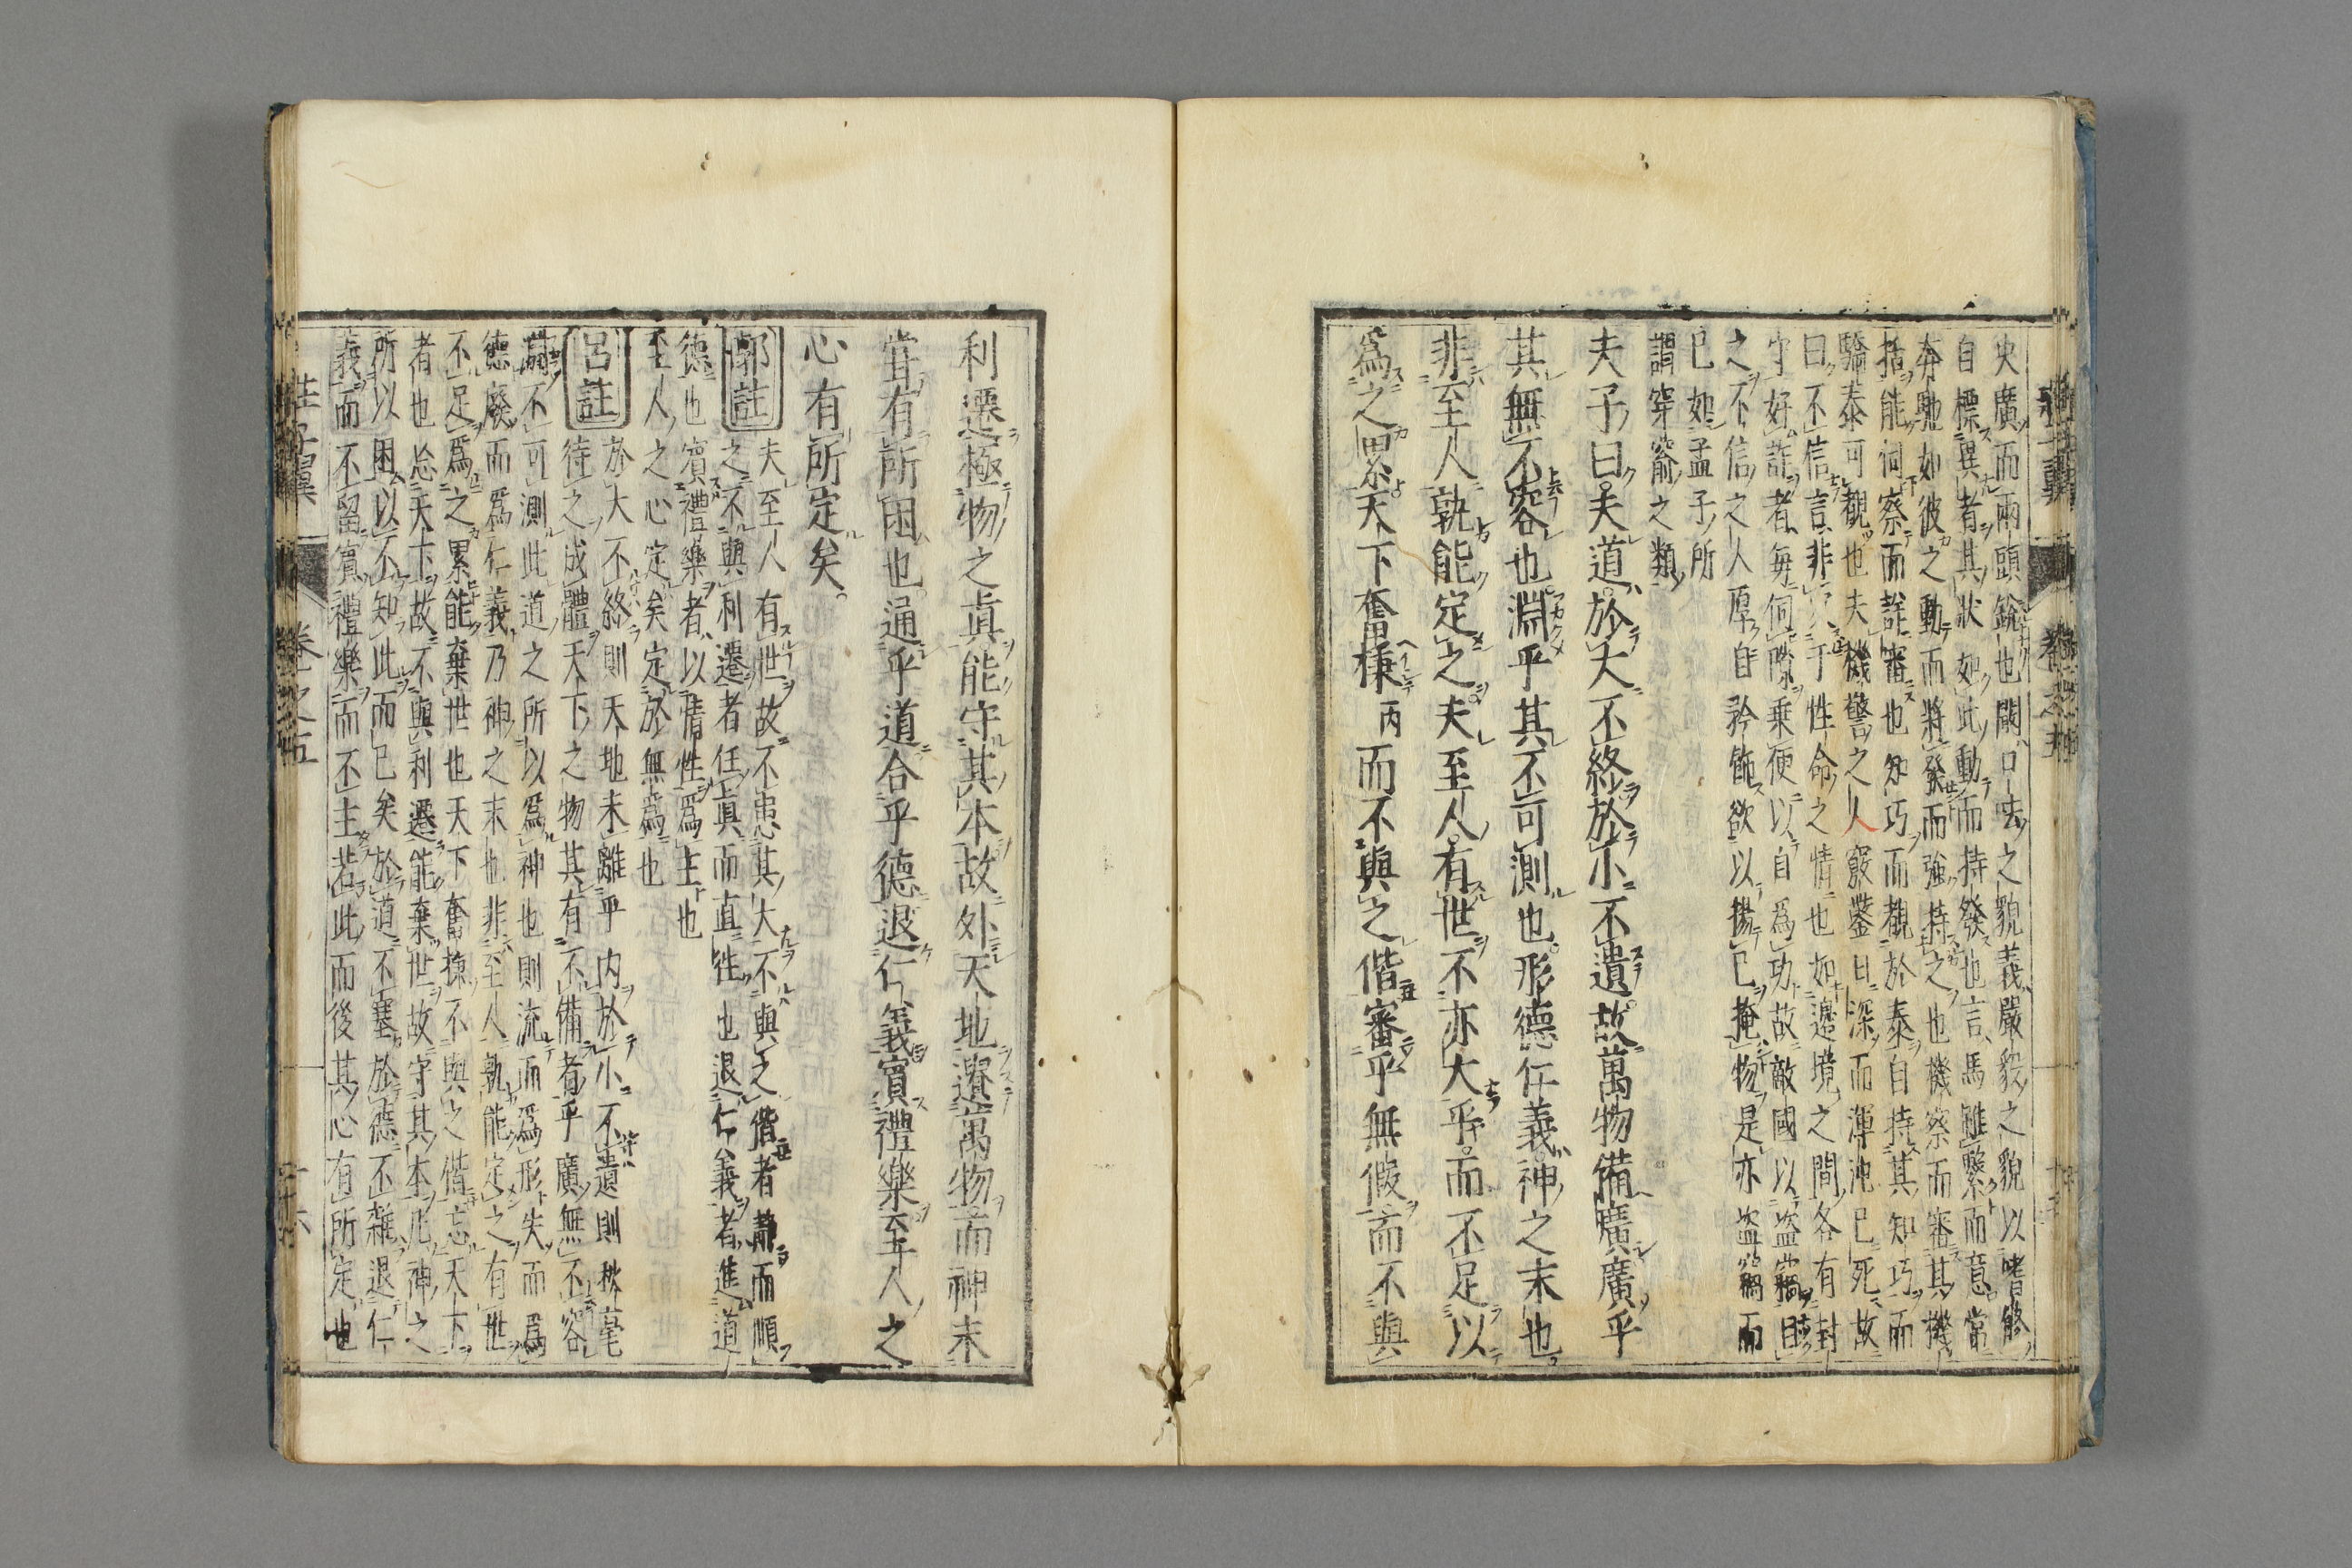 夫廣而兩頭銳也闞口呿之貌義嚴毅之貌以嗜終
自標異者其狀如此動而持發也言馬雖繫而意常
奔馳如彼之動而將發而強持之也機察而審其機
括能伺察而詳審也知巧而覩於泰自持其知巧而
驕泰可觀也夫機警之人竅鑿日深而渾沌已死故
曰不信言非于性命之情也如邊境之間各有封
守好詐者每伺隙乗便以自爲功故敵國以盜竊目
之不信之人厚自矜飾欲以揚已掩物是亦盜竊而
已如孟子所
謂穿窬之類
夫子曰夫道於大不終於小不遺故萬物備廣廣乎
其無不容也淵乎其不可測也形德仁義神之末也
非至人孰能定之夫至人有世不亦大乎而不足以
爲之累天下奮棅而不與之偕審乎無假而不與
利遷極物之眞能守其本故外天地遺萬物而神未
嘗有所困也通乎道合乎德退仁義賓禮樂至人之
心有所定矣
郭註
夫至人有世故不患其大不與之偕者靜而順
之不與利遷者任眞而直往也退仁義者進道
德也賓禮樂者以情性爲主也
至人之心定矣定於無爲也
呂註
於大不終則天地未離乎内於小不遺則秋毫
待之成體天下之物其有不備者乎廣無不容
淵不可測此道之所以爲神也則流而爲形失而爲
德廢而爲仁義乃神之末也非至人孰能定之有世
不足爲之累能棄世也天下奮棅不與之偕忘天下
者也忘天下故不與利遷能棄世故守其本凡神之
所以困以不知此而已矣於道不塞於德不雜退仁
義而不留賓禮樂而不主若此而後其心有所定也
莊子翼
卷之五